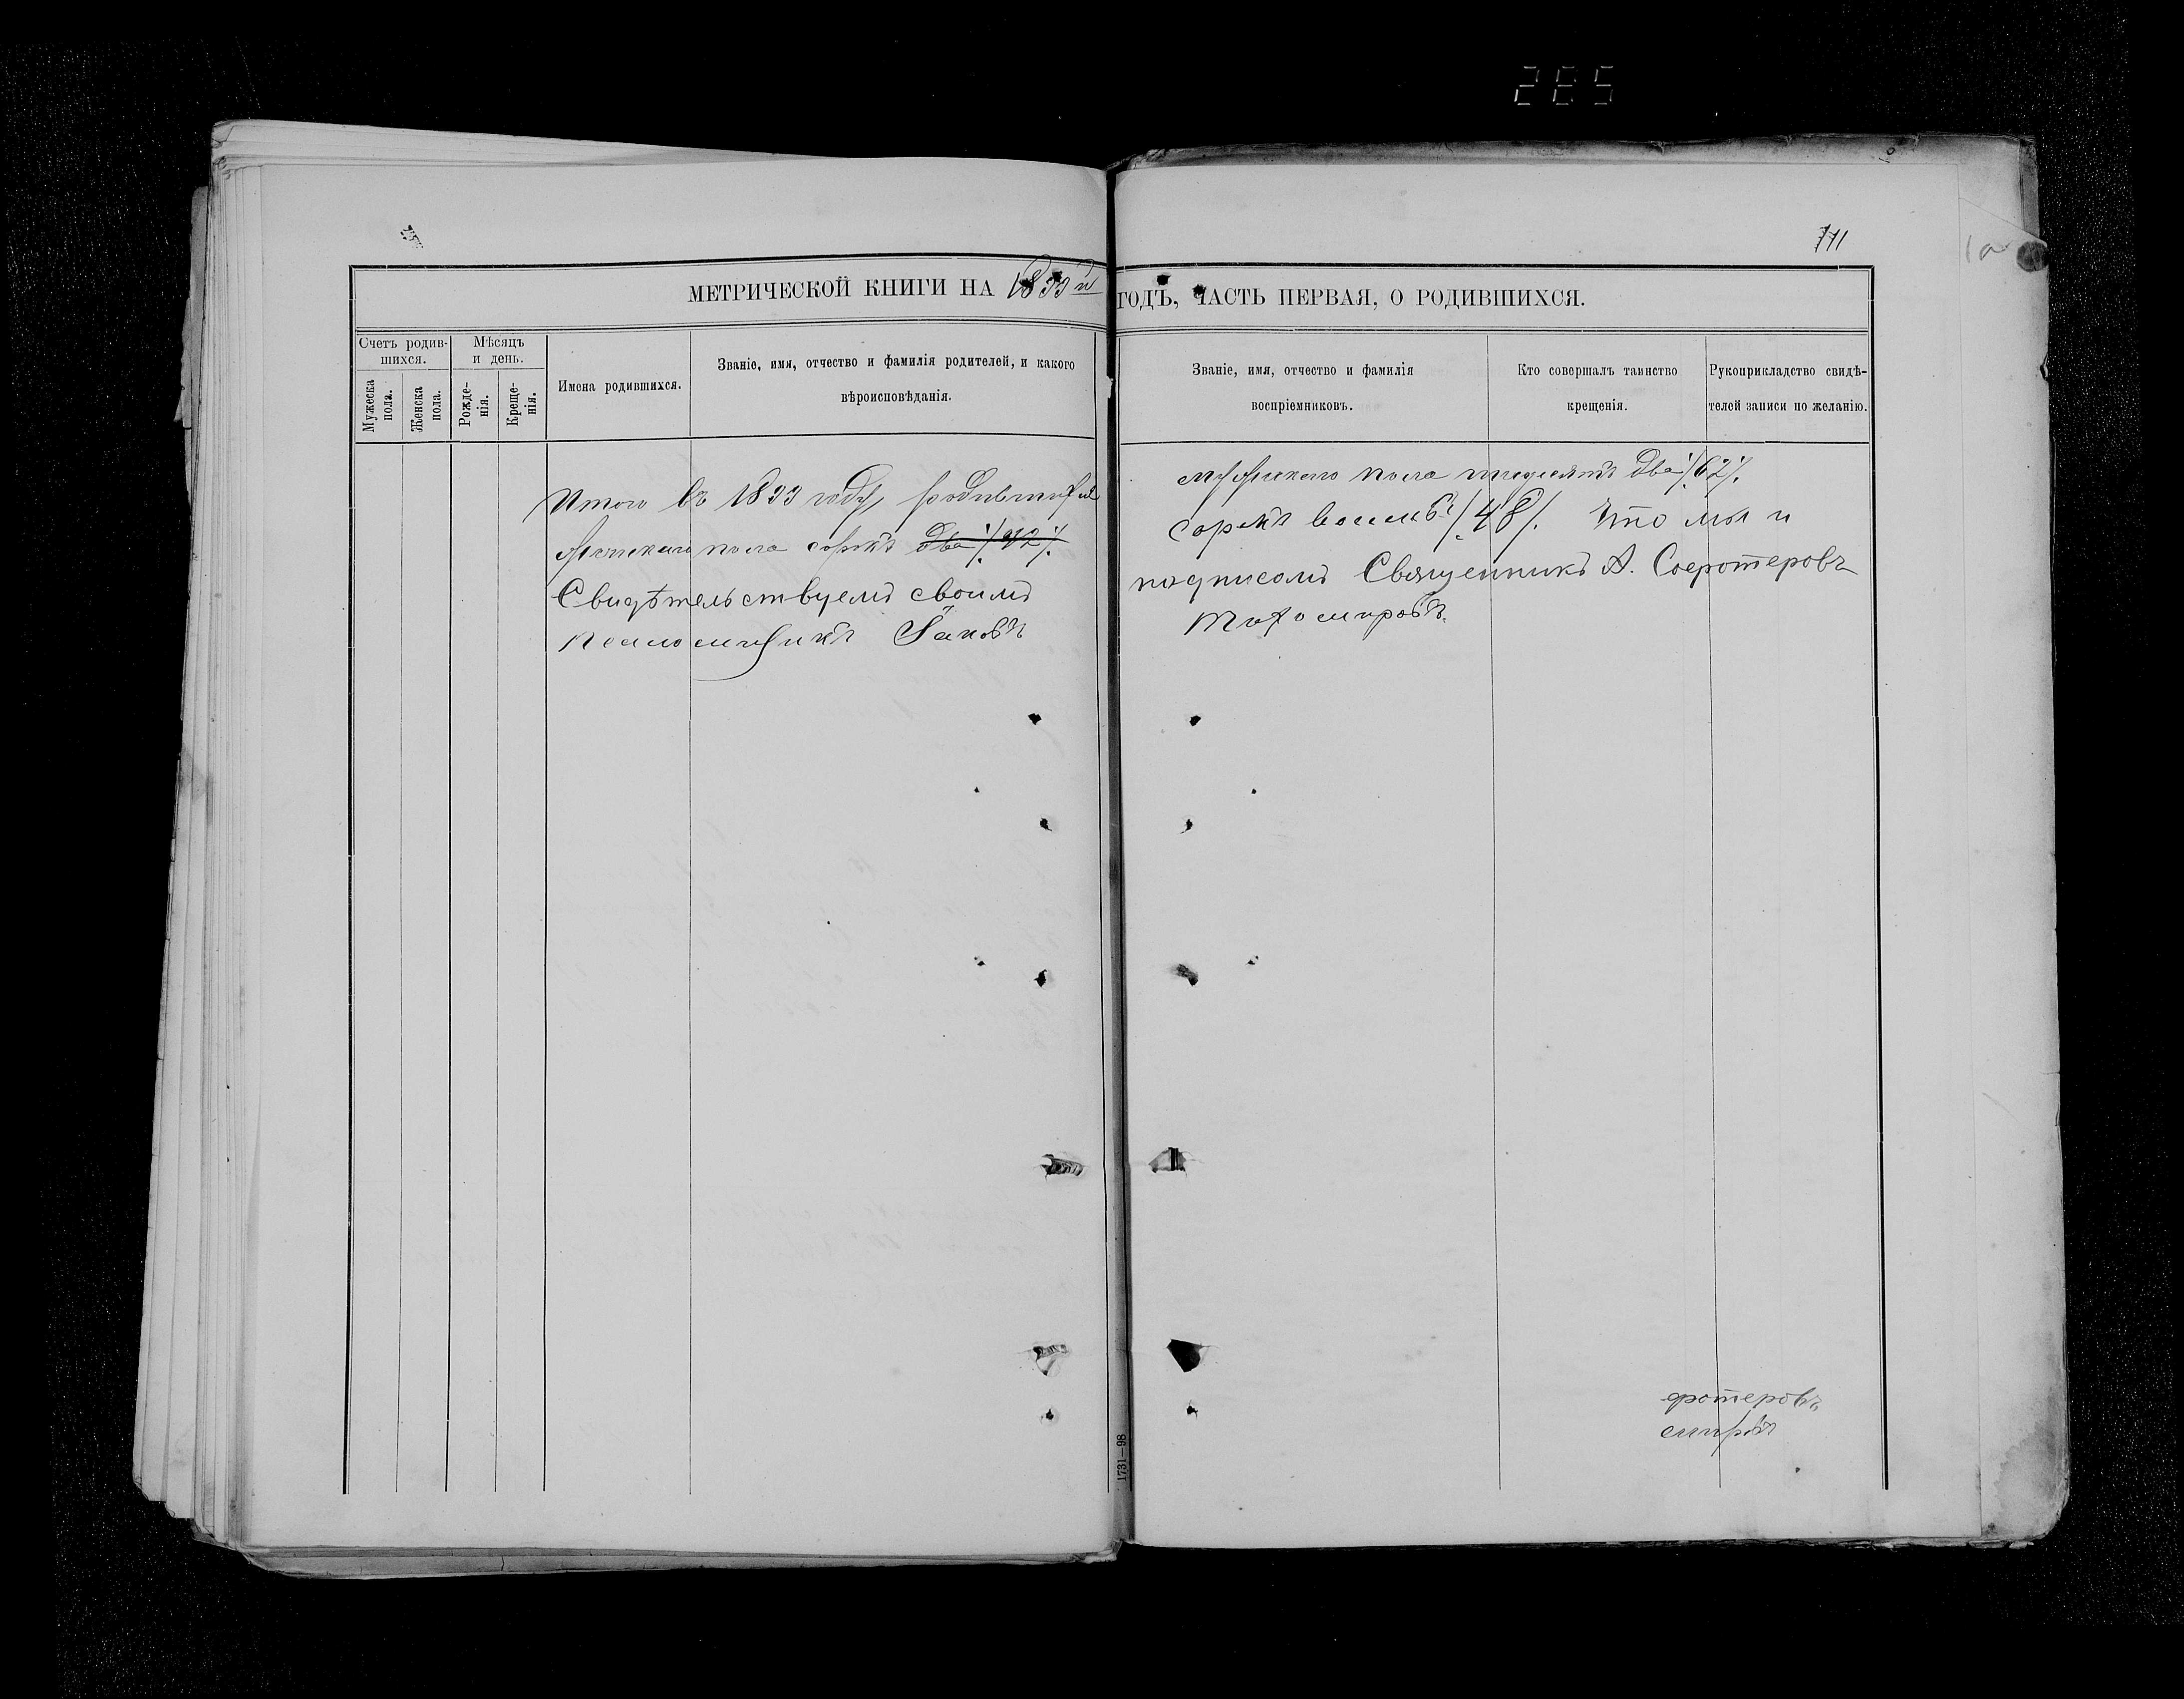 285
711
МЕТРИЧЕСКОЙ КНИГИ НА 1899 й ГОДЪ, ЧАСТЬ ПЕРВАЯ, О РОДИВШИХСЯ.
Счетъ родив-
шихся.
Мужеска
пола.
Женска
пола.
Мѣсяцъ
и день.
Рожде-
нія.
Креще-
нія.
Имена родившихся.
Званіе, имя, отчество и фамилія родителей, и какого
вѣроисповѣданія.
Званіе, имя, отчество и фамилія
воспріемниковъ.
Кто совершалъ таинство
крещенія.
Рукоприкладство свидѣ-
телей записи по желанію.
Итого въ 1899 году родившихся мужскаго пола шедесятъ два /62/.
женскаго пола сорокъ два /42/. сорокъ восемь /48/. Что мы и
Свидѣтельствуемъ своимъ подписомъ Священникъ А.
Псаломщикъ Іаковъ Тихомировъ.
1731—98
фотеровъ
мировъ